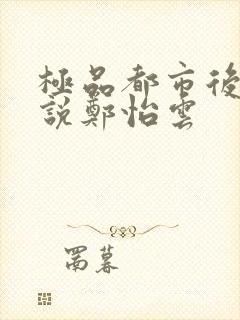 極品都市後
說鄭怡雲
蜀暮